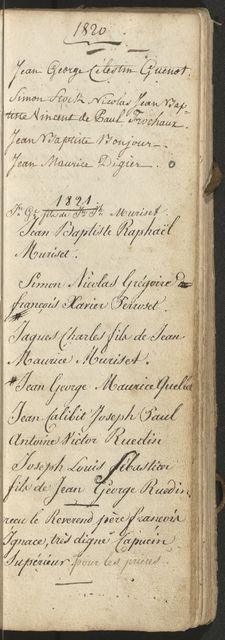 1820.
Jean George Célestin Guenot.
Simon Stock Nicolas Jean Bap-
tiste Vincent de Paul Frochaux.
Jean Baptiste Bonjour.
Jean Maurice Digier.
1821
fils de Muriset.
Jean Baptiste Raphaël
Muriset.
Simon Nicolas Grégoire de
françois Xavier Perroset.
Jaques Charles fils de Jean
Maurice Muriset.
Jean George Maurice Quelet
Jean Calixte Joseph Paul
Antoine Victor Ruedin
Joseph Louis Sébastien
fils de Jean George Ruedin
recu le Reverend père francois
Ignace, très digne Capucin
Supérieur pour les prieres.